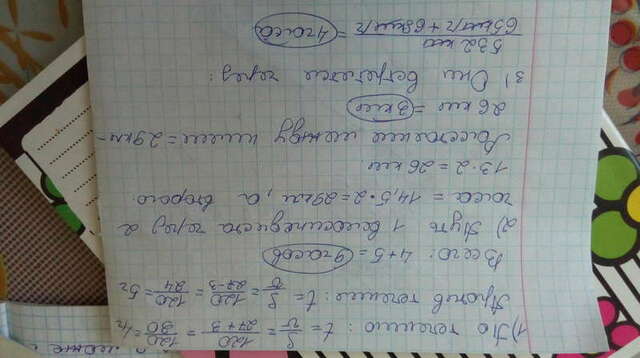 1) По течению: t = S/v = 120/27+3 = 120/30 = 4ч
Против течения: t = S/v = 120/27-3 = 120/24 = 5ч
Всего: 4+5 = 9 часов
2) Путь 1 велосипедиста через 2
часа = 14,5·2 = 29км, а второго
13·2 = 26 км.
Расстояние между ними = 29км -
26 км = 3 км
3) Они встретятся через:
532 км / 65км/ч + 68км/ч = 4 часа